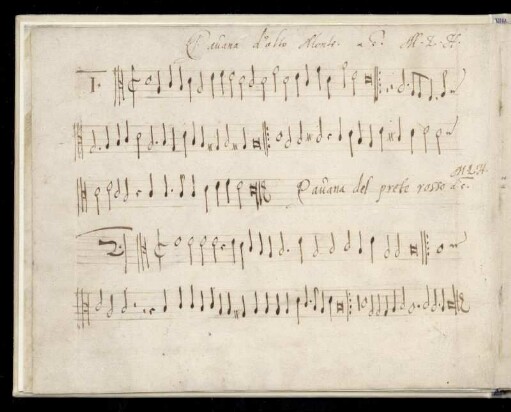 Pauana d'olio Monte. a 6. M. L. H.
1.
Pauana del prete rosso a 6. M L. H.
2.